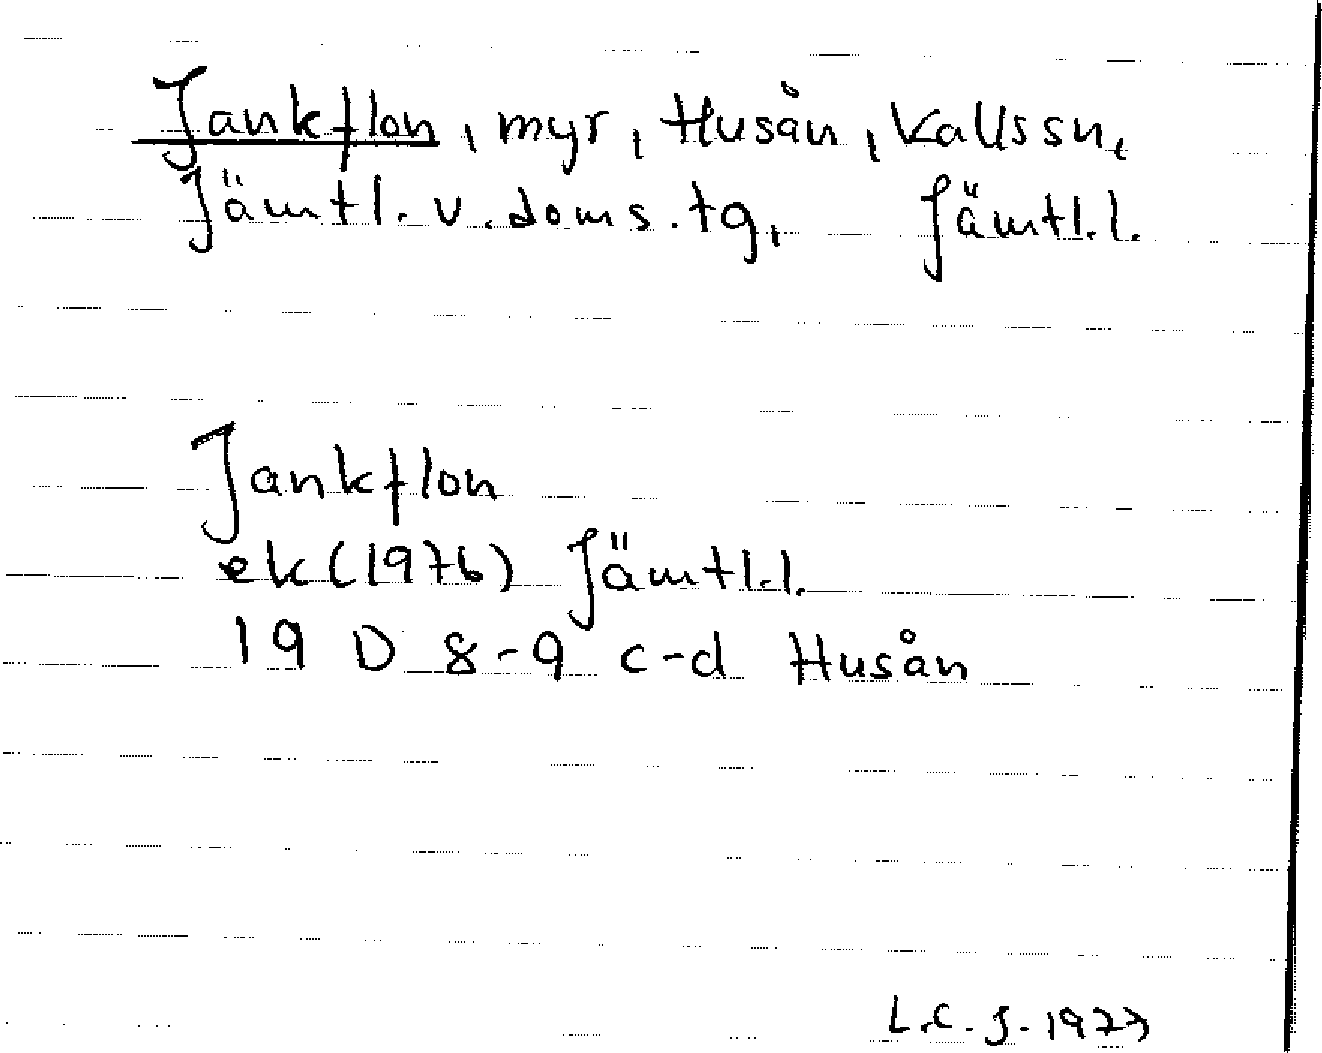 Jankflon, myr, Husån, Kallssn,
Jämtl. v. doms.tg, Jämtl.l.
Jankflon
ek (1976) Jämtl.l.
19 D 8-9 c-d Husån
L.C.J. 1977